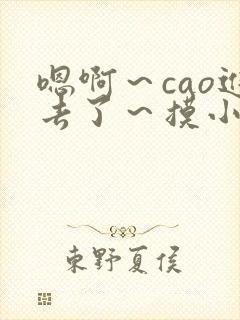 嗯啊～cao进
去了～摸小
東野夏侯